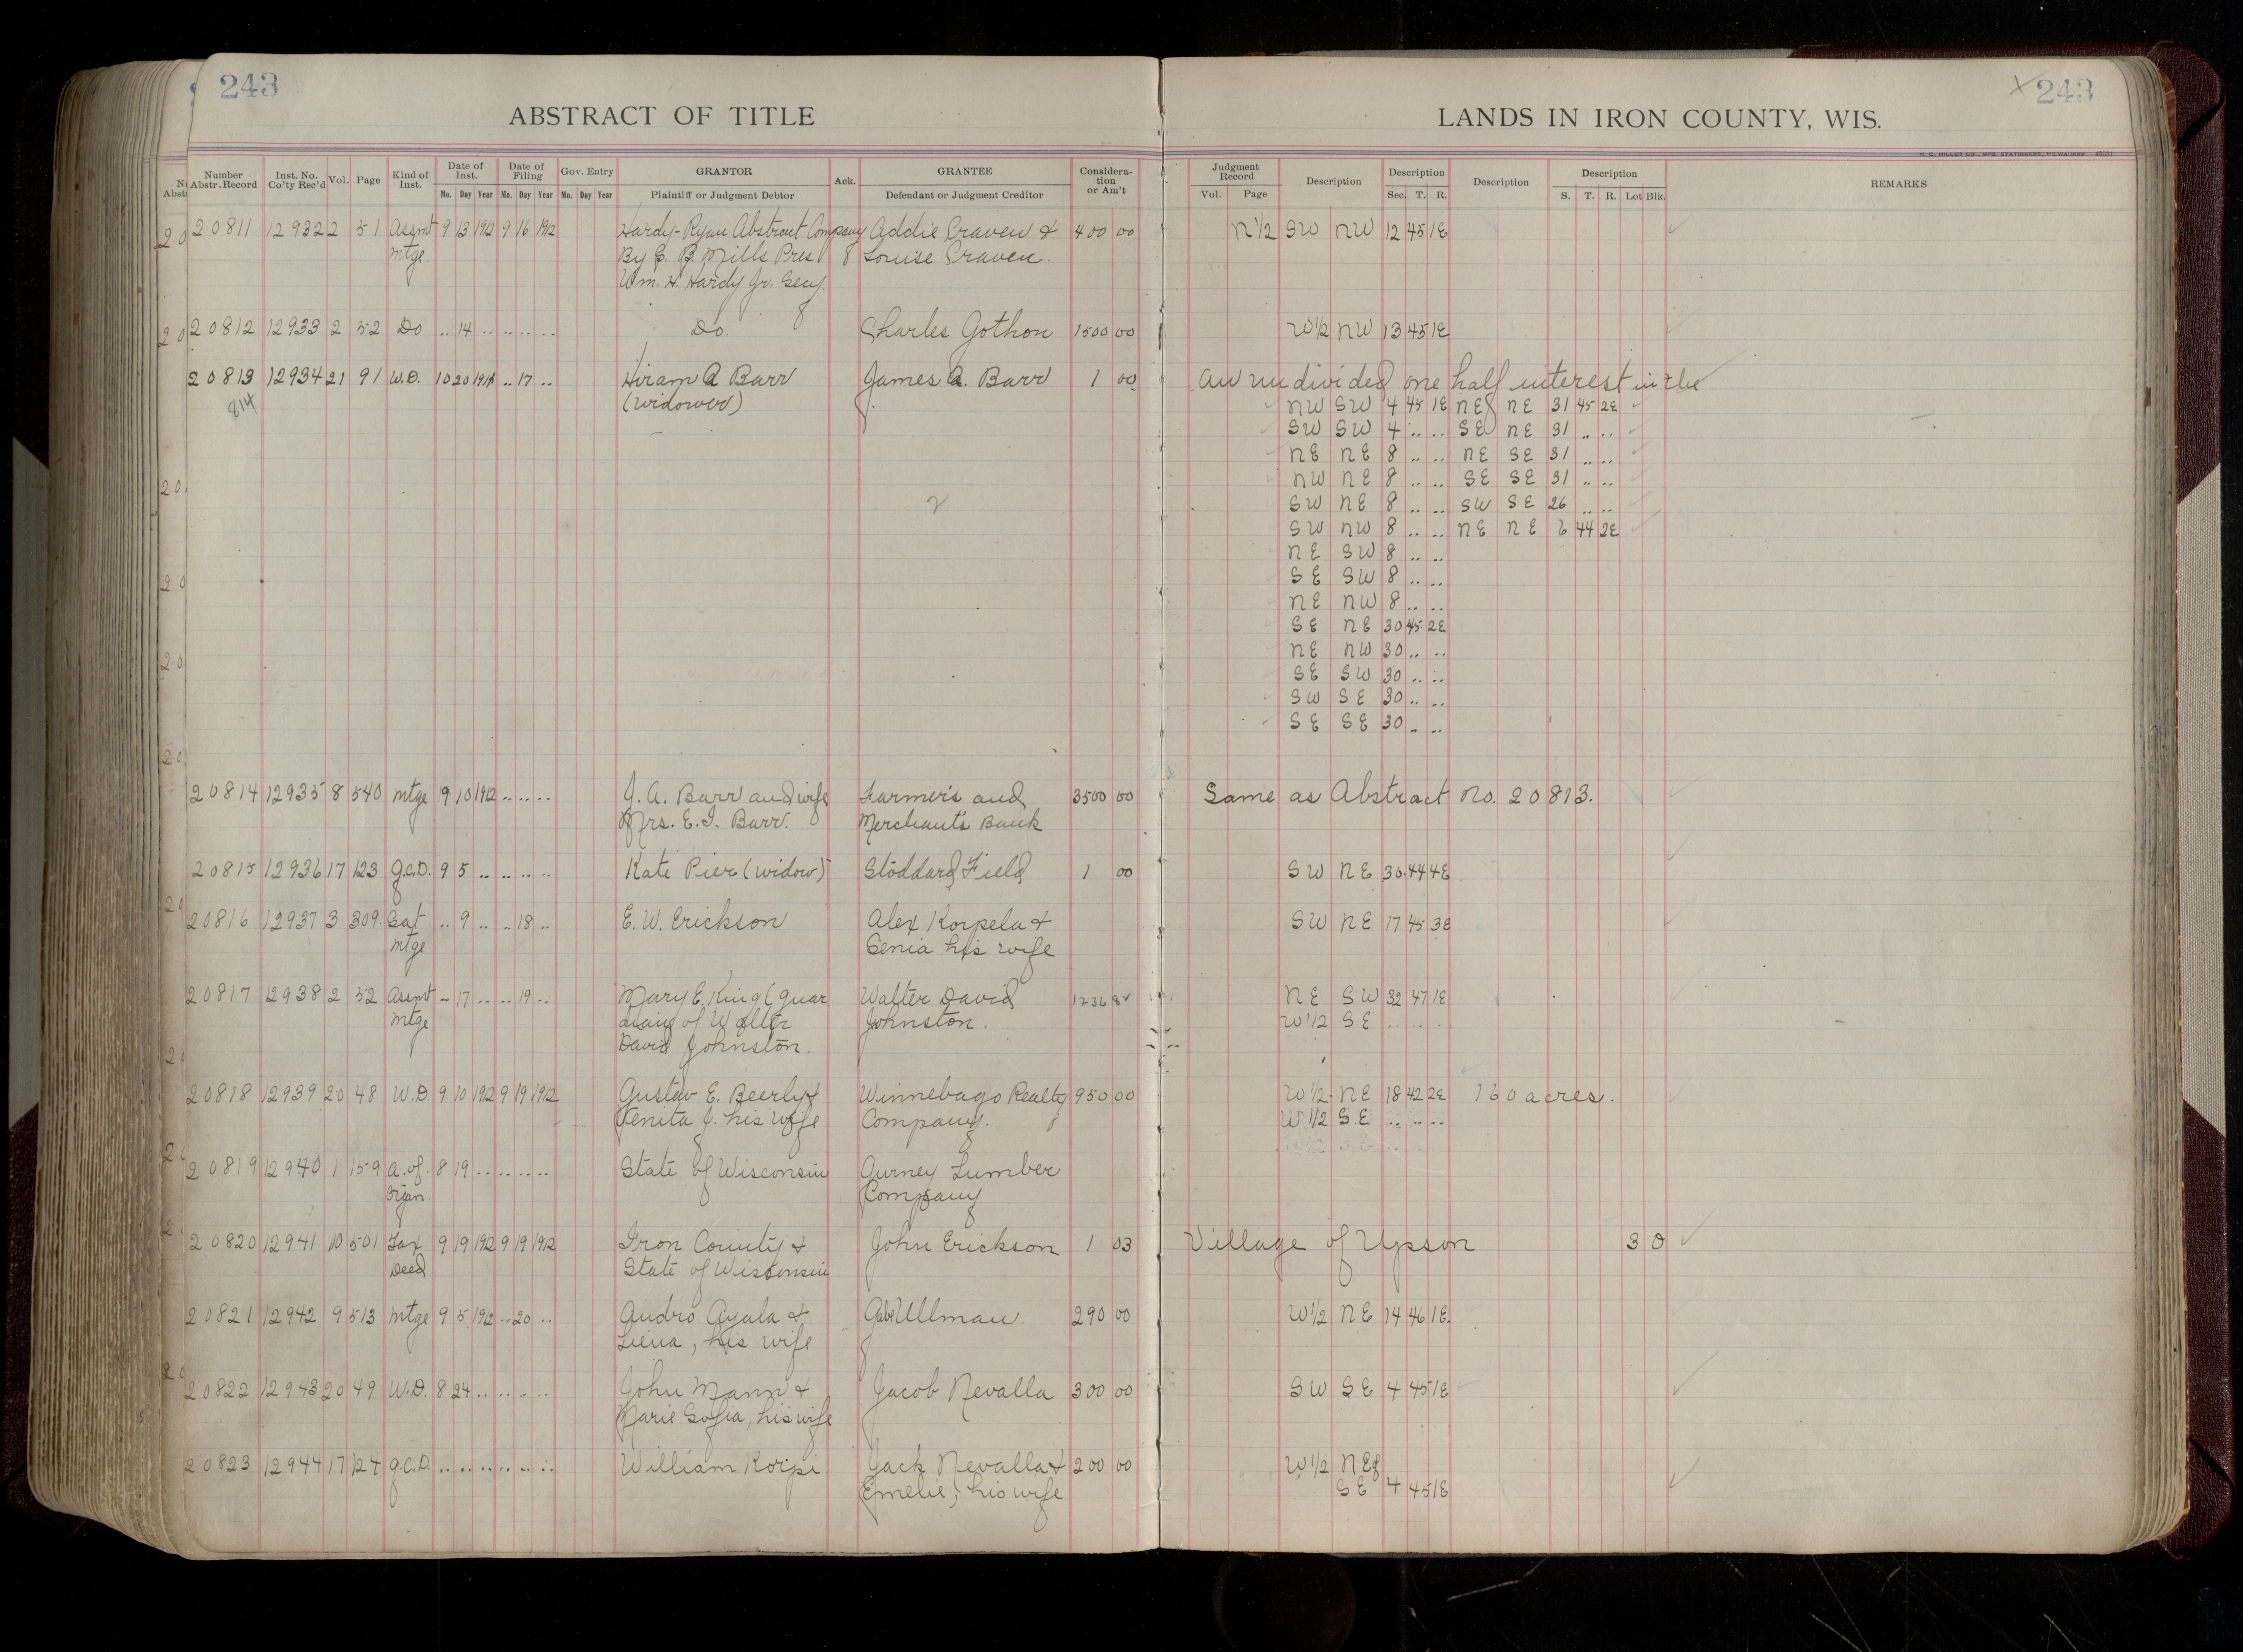 243
ABSTRACT OF TITLE
Number Abstr. Record | Inst. No. Co'ty Rec'd | Vol. | Page | Kind of Inst. | Date of Inst. Mo. Day Year | Date of Filing Mo. Day Year | Gov. Entry Mo. Day Year | GRANTOR Plaintiff or Judgment Debtor | Ack. | GRANTEE Defendant or Judgment Creditor | Considera-tion or Am't
20811 12932 2 51 Assmt 9 13 1912 9 16 1912 Hardy-Ryan Abstract Company Addie Craven & 400 00
mtge By E. B. Mills Pres & Louise Craven.
Wm. H. Hardy Jr. Secy.
20812 12933 2 52 Do .. 14 .. .. .. .. Do. Charles Gothon 1500 00
20813 12934 21 91 W.D. 10 20 1911 .. 17 .. Hiram A Barr James A. Barr 1 00
814 (widower)
20814 12935 8 540 mtge 9 10 1912 .. .. .. J. A. Barr and wife Farmer's and 3500 00
Mrs. E. I. Barr. Merchants Bank
20815 12936 17 123 Q.C.D. 9 5 .. .. .. .. Kate Pier (widow) Stoddard Field 1 00
20816 12937 3 309 Sat .. 9 .. .. 18 .. E. W. Erickson Alex Korpela &
mtge Senia his wife
20817 12938 2 52 Assmt - 17 .. .. 19 .. Mary E. King (guar Walter David 1236 84
mtge dian of Walter Johnston.
David Johnston.
20818 12939 20 48 W.D. 9 10 1912 9 19 1912 Gustav E. Beerly & Winnebago Realty 950 00
Jenita J. his wife Company.
20819 12940 1 159 A. of 8 19 .. .. .. .. State of Wisconsin Gurney Lumber
Organ. Company
20820 12941 10 501 Tax 9 19 1912 9 19 1912 Iron County & John Erickson 1 03
Deed State of Wisconsin
20821 12942 9 513 mtge 9 5 1912 .. 20 .. Andro Ayala & Gabe Ullman. 290 00
Liena, his wife
20822 12943 20 49 W.D. 8 24 .. .. .. .. John Mann & Jacob Nevalla 300 00
Marie Sofia, his wife
20823 12944 17 124 Q.C.D. .. .. .. .. .. .. William Korpi Jack Nevalla & 200 00
Emelie, his wife
243
LANDS IN IRON COUNTY, WIS.
H. G. MILLER CO., MFG. STATIONERS, MILWAUKEE
Judgment Record Vol. Page | Description | Description Sec. T. R. | Description | Description S. T. R. Lot Blk. | REMARKS
N1/2 SW NW 12 45 1E
W1/2 NW 13 45 1E
An undivided one half interest in the
NW SW 4 45 1E NE NE 31 45 2E
SW SW 4 .. .. SE NE 31 .. ..
NE NE 8 .. .. NE SE 31 .. ..
NW NE 8 .. .. SE SE 31 .. ..
SW NE 8 .. .. SW SE 26 .. ..
SW NW 8 .. .. NE NE 6 44 2E
NE SW 8 .. ..
SE SW 8 .. ..
NE NW 8 .. ..
SE NE 30 45 2E
NE NW 30 .. ..
SE SW 30 .. ..
SW SE 30 .. ..
SE SE 30 .. ..
Same as Abstract No. 20813.
SW NE 30 44 4E
SW NE 17 45 3E
NE SW 32 47 1E
W1/2 SE .. .. ..
W1/2 NE 18 42 2E 160 acres.
W1/2 SE .. .. ..
Village of Upson 3 0
W1/2 NE 14 46 1E.
SW SE 4 45 1E
W1/2 NE of
SE 4 45 1E